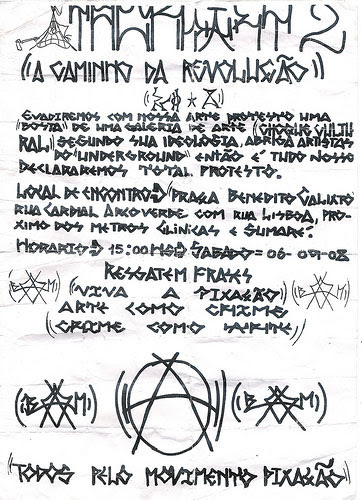 2
"(A CAMINHO DA REVOLUÇÃO)"
EVADIREMOS COM NOSSA ARTE PROTESTO UMA
"BOSTA" DE UMA GALERIA DE ARTE (CHOQUE CULTU
RAL) SEGUNDO SUA IDEOLOGIA, ABRIGA ARTISTAS
DO "UNDERGROUND" ENTÃO É TUDO NOSSO
DECLARAREMOS TOTAL PROTESTO.
LOCAL DE ENCONTRO PRAÇA BENEDITO CALIXTO
RUA CARDIAL ARCOVERDE. COM RUA LISBOA, PRÓ-
XIMO DOS METROS CLINICAS E SUMARÉ.
HORARIO 15:00HS SABADO= 06-09-08
RESGATEM FRASES
"(VIVA A PIXAÇÃO)"
ARTE COMO CRIME
(CRIME COMO ARTE)
A
"TODOS PELO MOVIMENTO PIXAÇÃO"